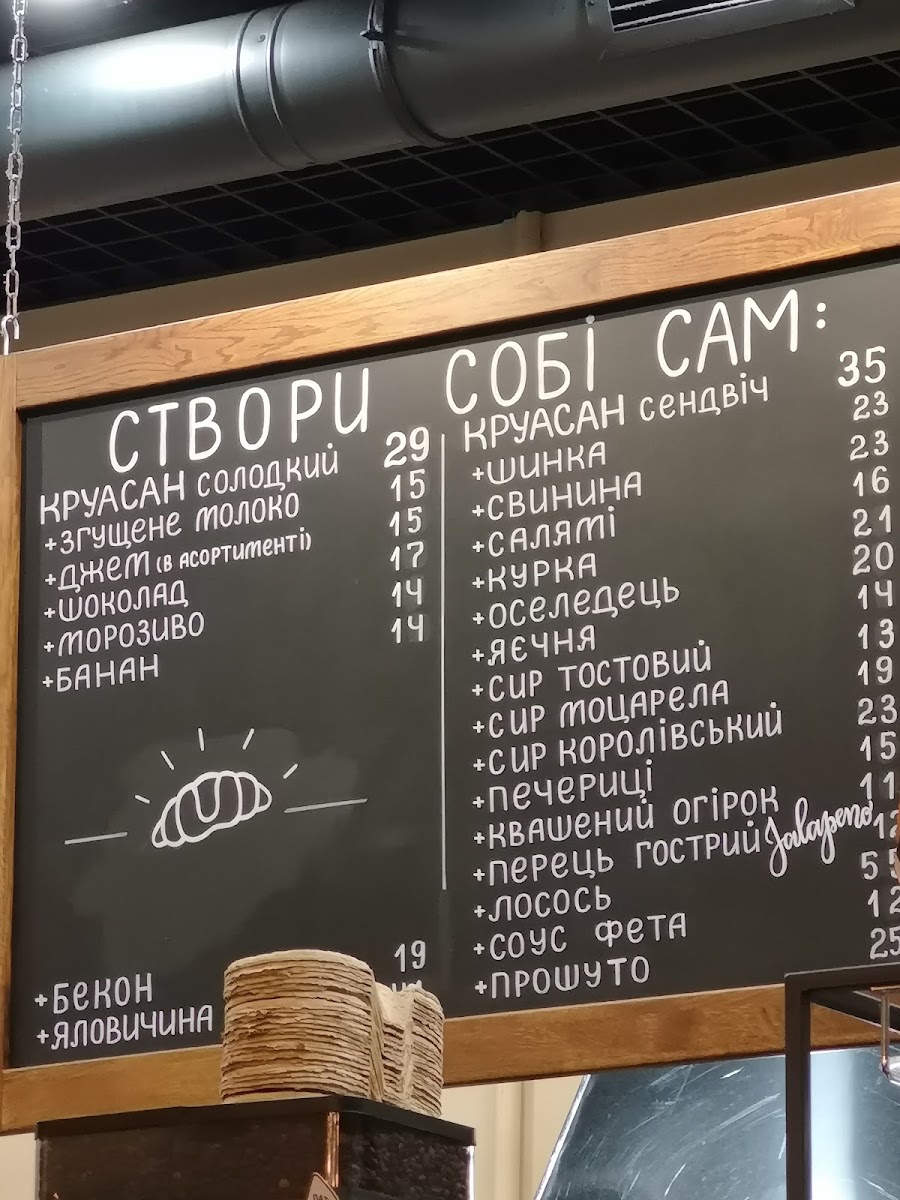 СТВОРИ СОБІ САМ:
КРУАСАН СОЛОДКИЙ 29
+ЗГУЩЕНЕ МОЛОКО 15
+ДЖЕМ (В АСОРТИМЕНТІ) 15
+ШОКОЛАД 17
+МОРОЗИВО 14
+БАНАН 14
+БЕКОН 19
+ЯЛОВИЧИНА
КРУАСАН СЕНДВІЧ 35
+ШИНКА 23
+СВИНИНА 23
+САЛЯМІ 16
+КУРКА 21
+ОСЕЛЕДЕЦЬ 20
+ЯЄЧНЯ 14
+СИР ТОСТОВИЙ 13
+СИР МОЦАРЕЛА 19
+СИР КОРОЛІВСЬКИЙ 23
+ПЕЧЕРИЦІ 15
+КВАШЕНИЙ ОГІРОК 11
+ПЕРЕЦЬ ГОСТРИЙ Jalapeno 12
+ЛОСОСЬ 55
+СОУС ФЕТА 12
+ПРОШУТО 25